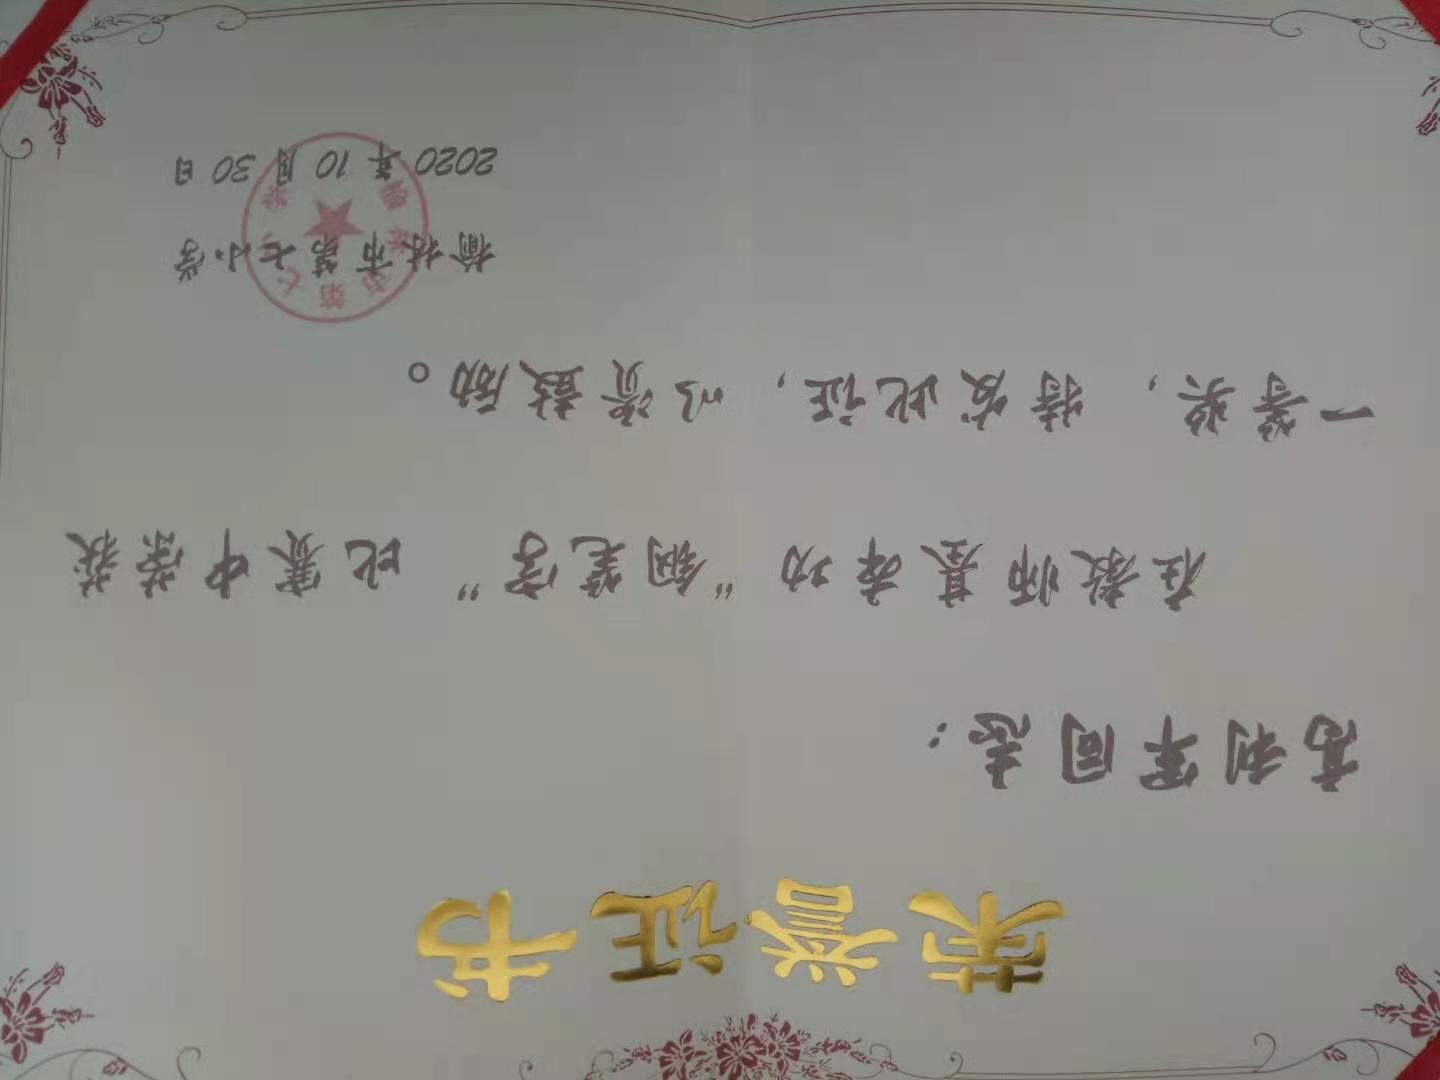 荣誉证书
高利军同志：
在教师基本功“钢笔字”比赛中荣获
一等奖，特发此证，以资鼓励。
榆林市第七小学
2020年10月30日